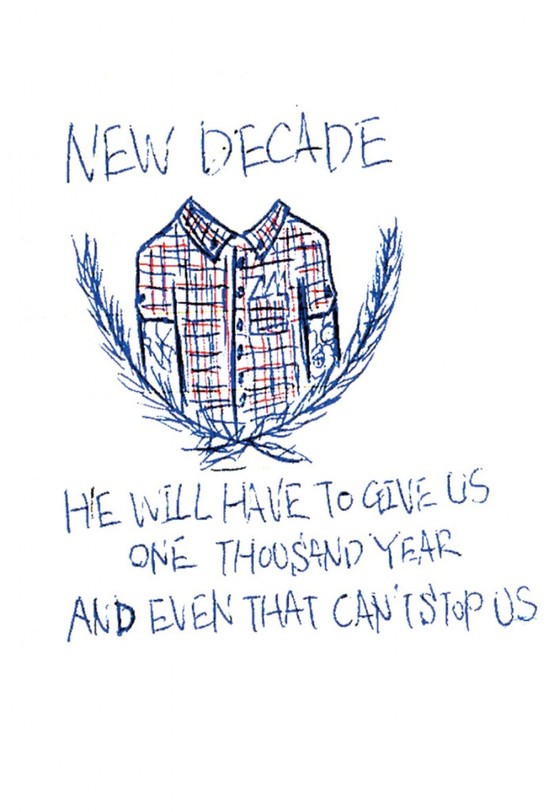 NEW DECADE
HE WILL HAVE TO GIVE US
ONE THOUSAND YEAR
AND EVEN THAT CAN'T STOP US